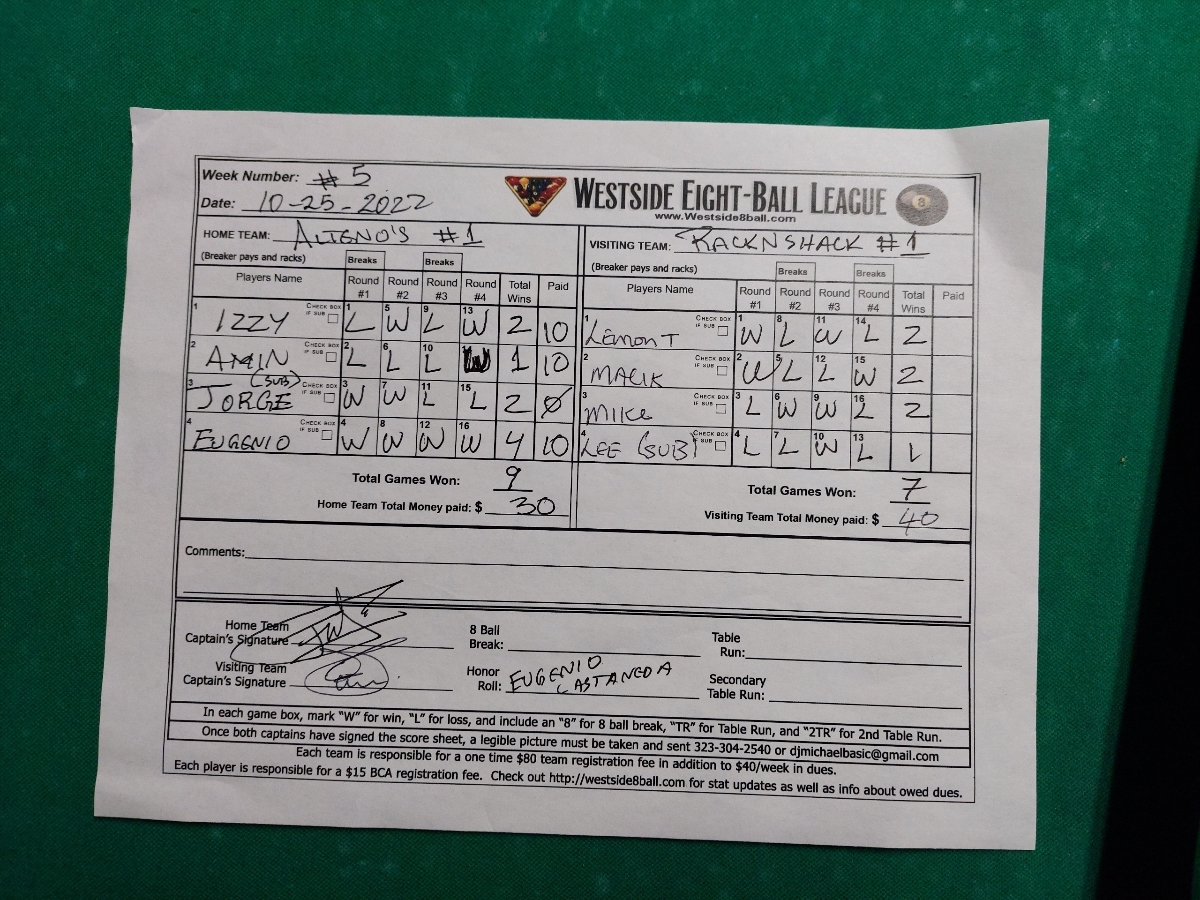 Week Number: #5
Date: 10-25-2022
WESTSIDE EIGHT-BALL LEAGUE
www.Westside8ball.com
8
HOME TEAM: ALIGNO'S #1
VISITING TEAM: RACKNSHACK #1
(Breaker pays and racks) Breaks Breaks
(Breaker pays and racks) Breaks Breaks
Players Name Round #1 Round #2 Round #3 Round #4 Total Wins Paid
Players Name Round #1 Round #2 Round #3 Round #4 Total Wins Paid
1 IZZY CHECK BOX IF SUB 1 L 5 W 9 L 13 W 2 10
1 LEMONT CHECK BOX IF SUB 1 W 8 L 11 W 14 L 2
2 AMIN CHECK BOX IF SUB 2 L 6 L 10 L W 1 10
2 MALIK CHECK BOX IF SUB 2 W 5 L 12 L 15 W 2
3 JORGE (SUB) CHECK BOX IF SUB 3 W 7 W 11 L 15 L 2 Ø
3 MIKE CHECK BOX IF SUB 3 L 6 W 9 W 16 L 2
4 EUGENIO CHECK BOX IF SUB 4 W 8 W 12 W 16 W 4 10
4 LEE (SUB) CHECK BOX IF SUB 4 L 7 L 10 W 13 L 1
Total Games Won: 9
Total Games Won: 7
Home Team Total Money paid: $ 30
Visiting Team Total Money paid: $ 40
Comments:
Home Team
Captain's Signature
8 Ball
Break:
Table
Run:
Visiting Team
Captain's Signature
Honor
Roll: EUGENIO
CASTANEDA
Secondary
Table Run:
In each game box, mark "W" for win, "L" for loss, and include an "8" for 8 ball break, "TR" for Table Run, and "2TR" for 2nd Table Run.
Once both captains have signed the score sheet, a legible picture must be taken and sent 323-304-2540 or djmichaelbasic@gmail.com
Each team is responsible for a one time $80 team registration fee in addition to $40/week in dues.
Each player is responsible for a $15 BCA registration fee. Check out http://westside8ball.com for stat updates as well as info about owed dues.